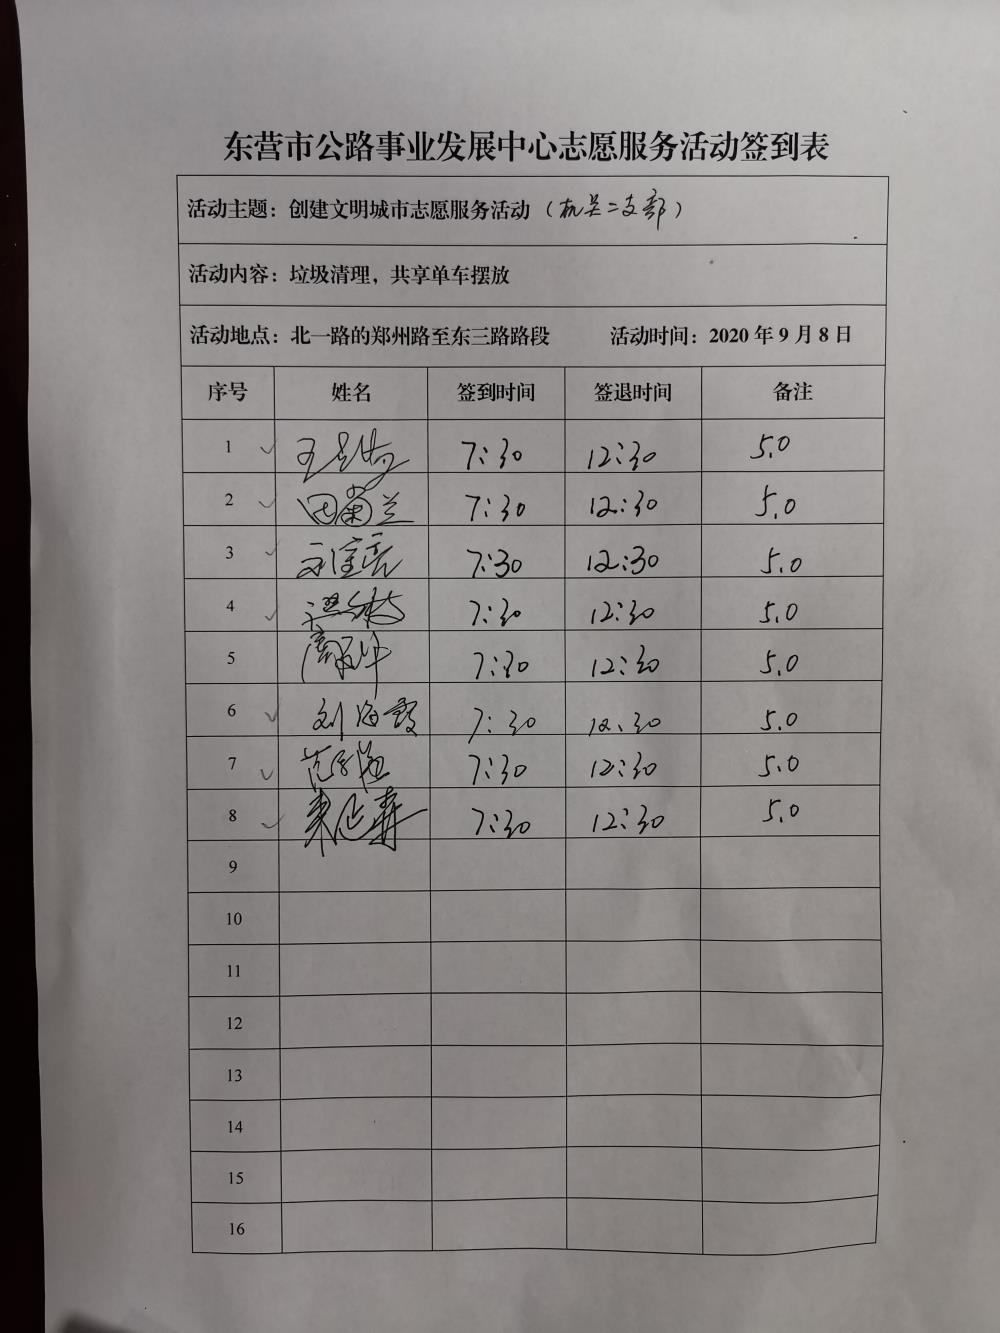 东营市公路事业发展中心志愿服务活动签到表
活动主题：创建文明城市志愿服务活动（机关二支部）
活动内容：垃圾清理，共享单车摆放
活动地点：北一路的郑州路至东三路路段 活动时间：2020 年 9 月 8 日
序号 姓名 签到时间 签退时间 备注
1 7:30 12:30 5.0
2 田菊兰 7:30 12:30 5.0
3 7:30 12:30 5.0
4 7:30 12:30 5.0
5 7:30 12:30 5.0
6 刘海霞 7:30 12:30 5.0
7 7:30 12:30 5.0
8 7:30 12:30 5.0
9
10
11
12
13
14
15
16